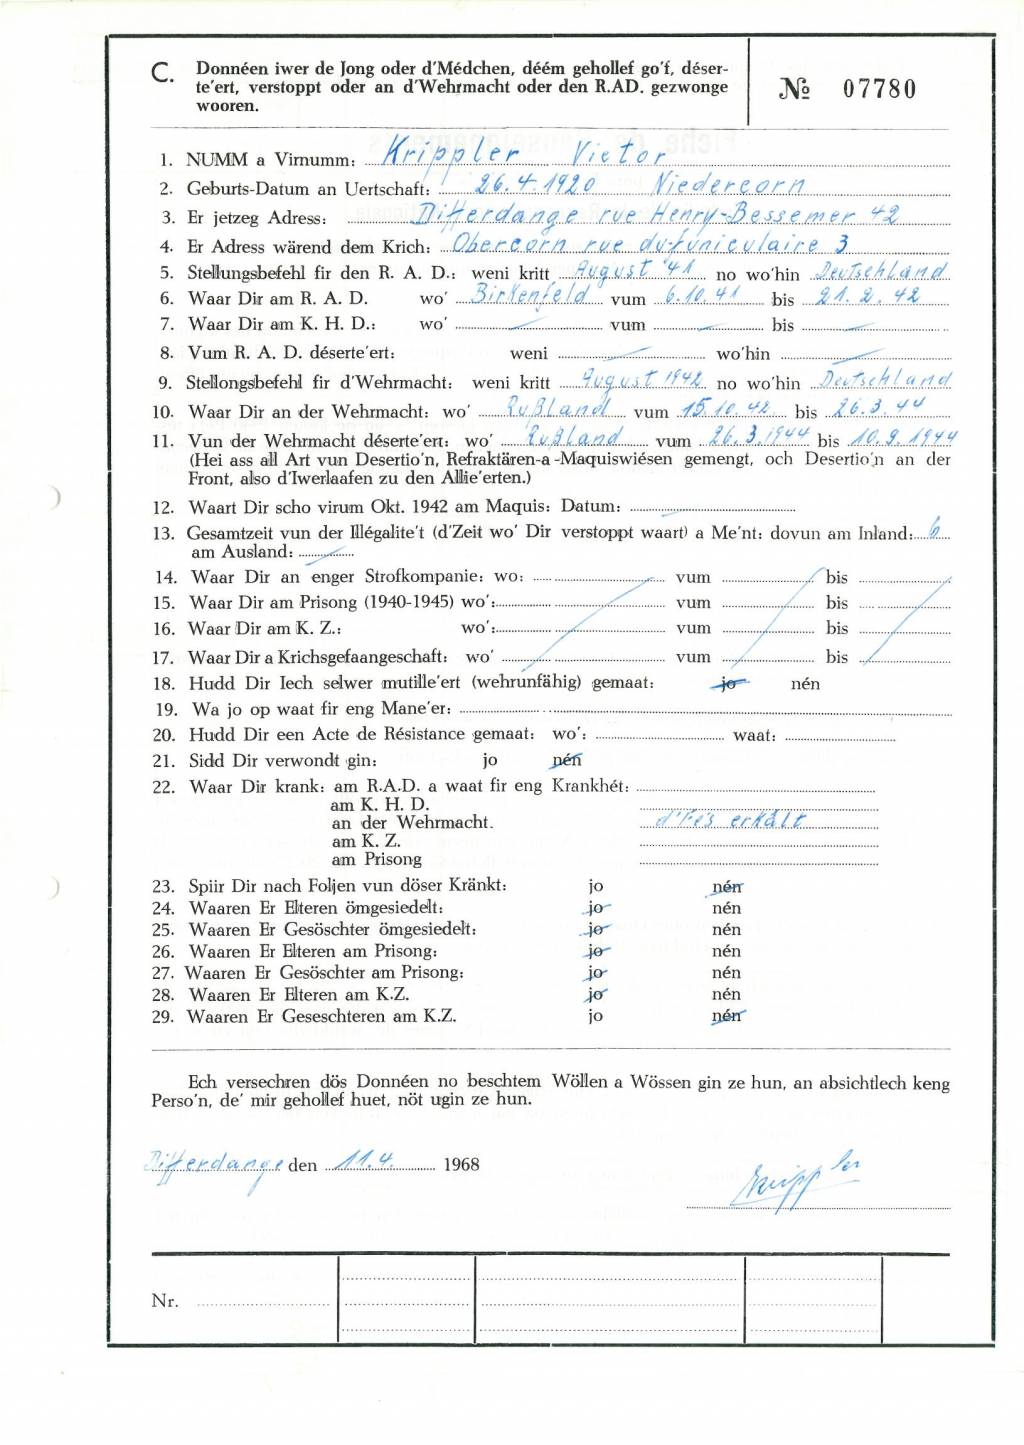 C. Donnéen iwer de Jong oder d'Médchen, déém gehollef go'f, déser-
te'ert, verstoppt oder an d'Wehrmacht oder den R.AD. gezwonge
wooren.
№ 07780
1. NUMM a Virnumm: Krippler Victor
2. Geburts-Datum an Uertschaft: 26.4.1920 Niedercorn
3. Er jetzeg Adress: Differdange rue Henry-Bessemer 42
4. Er Adress wärend dem Krich: Obercorn rue du funiculaire 3
5. Stellungsbefehl fir den R. A. D.: weni kritt August 41 no wo'hin Deutschland
6. Waar Dir am R. A. D. wo' Birkenfeld vum 6.10.41 bis 21.2.42
7. Waar Dir am K. H. D.: wo' — vum — bis —
8. Vum R. A. D. déserte'ert: weni — wo'hin —
9. Stellongsbefehl fir d'Wehrmacht: weni kritt August 1942 no wo'hin Deutschland
10. Waar Dir an der Wehrmacht: wo' Rußland vum 15.10.42 bis 26.3.44
11. Vun der Wehrmacht déserte'ert: wo' Rußland vum 26.3.1944 bis 10.9.1944
(Hei ass all Art vun Desertio'n, Refraktären-a-Maquiswiésen gemengt, och Desertio'n an der
Front, also d'Iwerlaafen zu den Allie'erten.)
12. Waart Dir scho virum Okt. 1942 am Maquis: Datum: —
13. Gesamtzeit vun der Illégalite't (d'Zeit wo' Dir verstoppt waart) a Me'nt: dovun am Inland: 6
am Ausland: —
14. Waar Dir an enger Strofkompanie: wo: vum bis
15. Waar Dir am Prisong (1940-1945) wo': vum bis
16. Waar Dir am K. Z.: wo': vum bis
17. Waar Dir a Krichsgefaangeschaft: wo' vum bis
18. Hudd Dir Iech selwer mutille'ert (wehrunfähig) gemaat: jo nén
19. Wa jo op waat fir eng Mane'er:
20. Hudd Dir een Acte de Résistance gemaat: wo': waat:
21. Sidd Dir verwondt gin: jo nén
22. Waar Dir krank: am R.A.D. a waat fir eng Krankhét:
am K. H. D.
an der Wehrmacht. d'Fés erkált
am K. Z.
am Prisong
23. Spiir Dir nach Foljen vun döser Kränkt: jo nén
24. Waaren Er Elteren ömgesiedelt: jo nén
25. Waaren Er Gesöschter ömgesiedelt: jo nén
26. Waaren Er Elteren am Prisong: jo nén
27. Waaren Er Gesöschter am Prisong: jo nén
28. Waaren Er Elteren am K.Z. jo nén
29. Waaren Er Geseschteren am K.Z. jo nén
Ech versechren dös Donnéen no beschtem Wöllen a Wössen gin ze hun, an absichtlech keng
Perso'n, de' mir gehollef huet, nöt ugin ze hun.
Differdange den 11.4. 1968
Krippler
Nr.